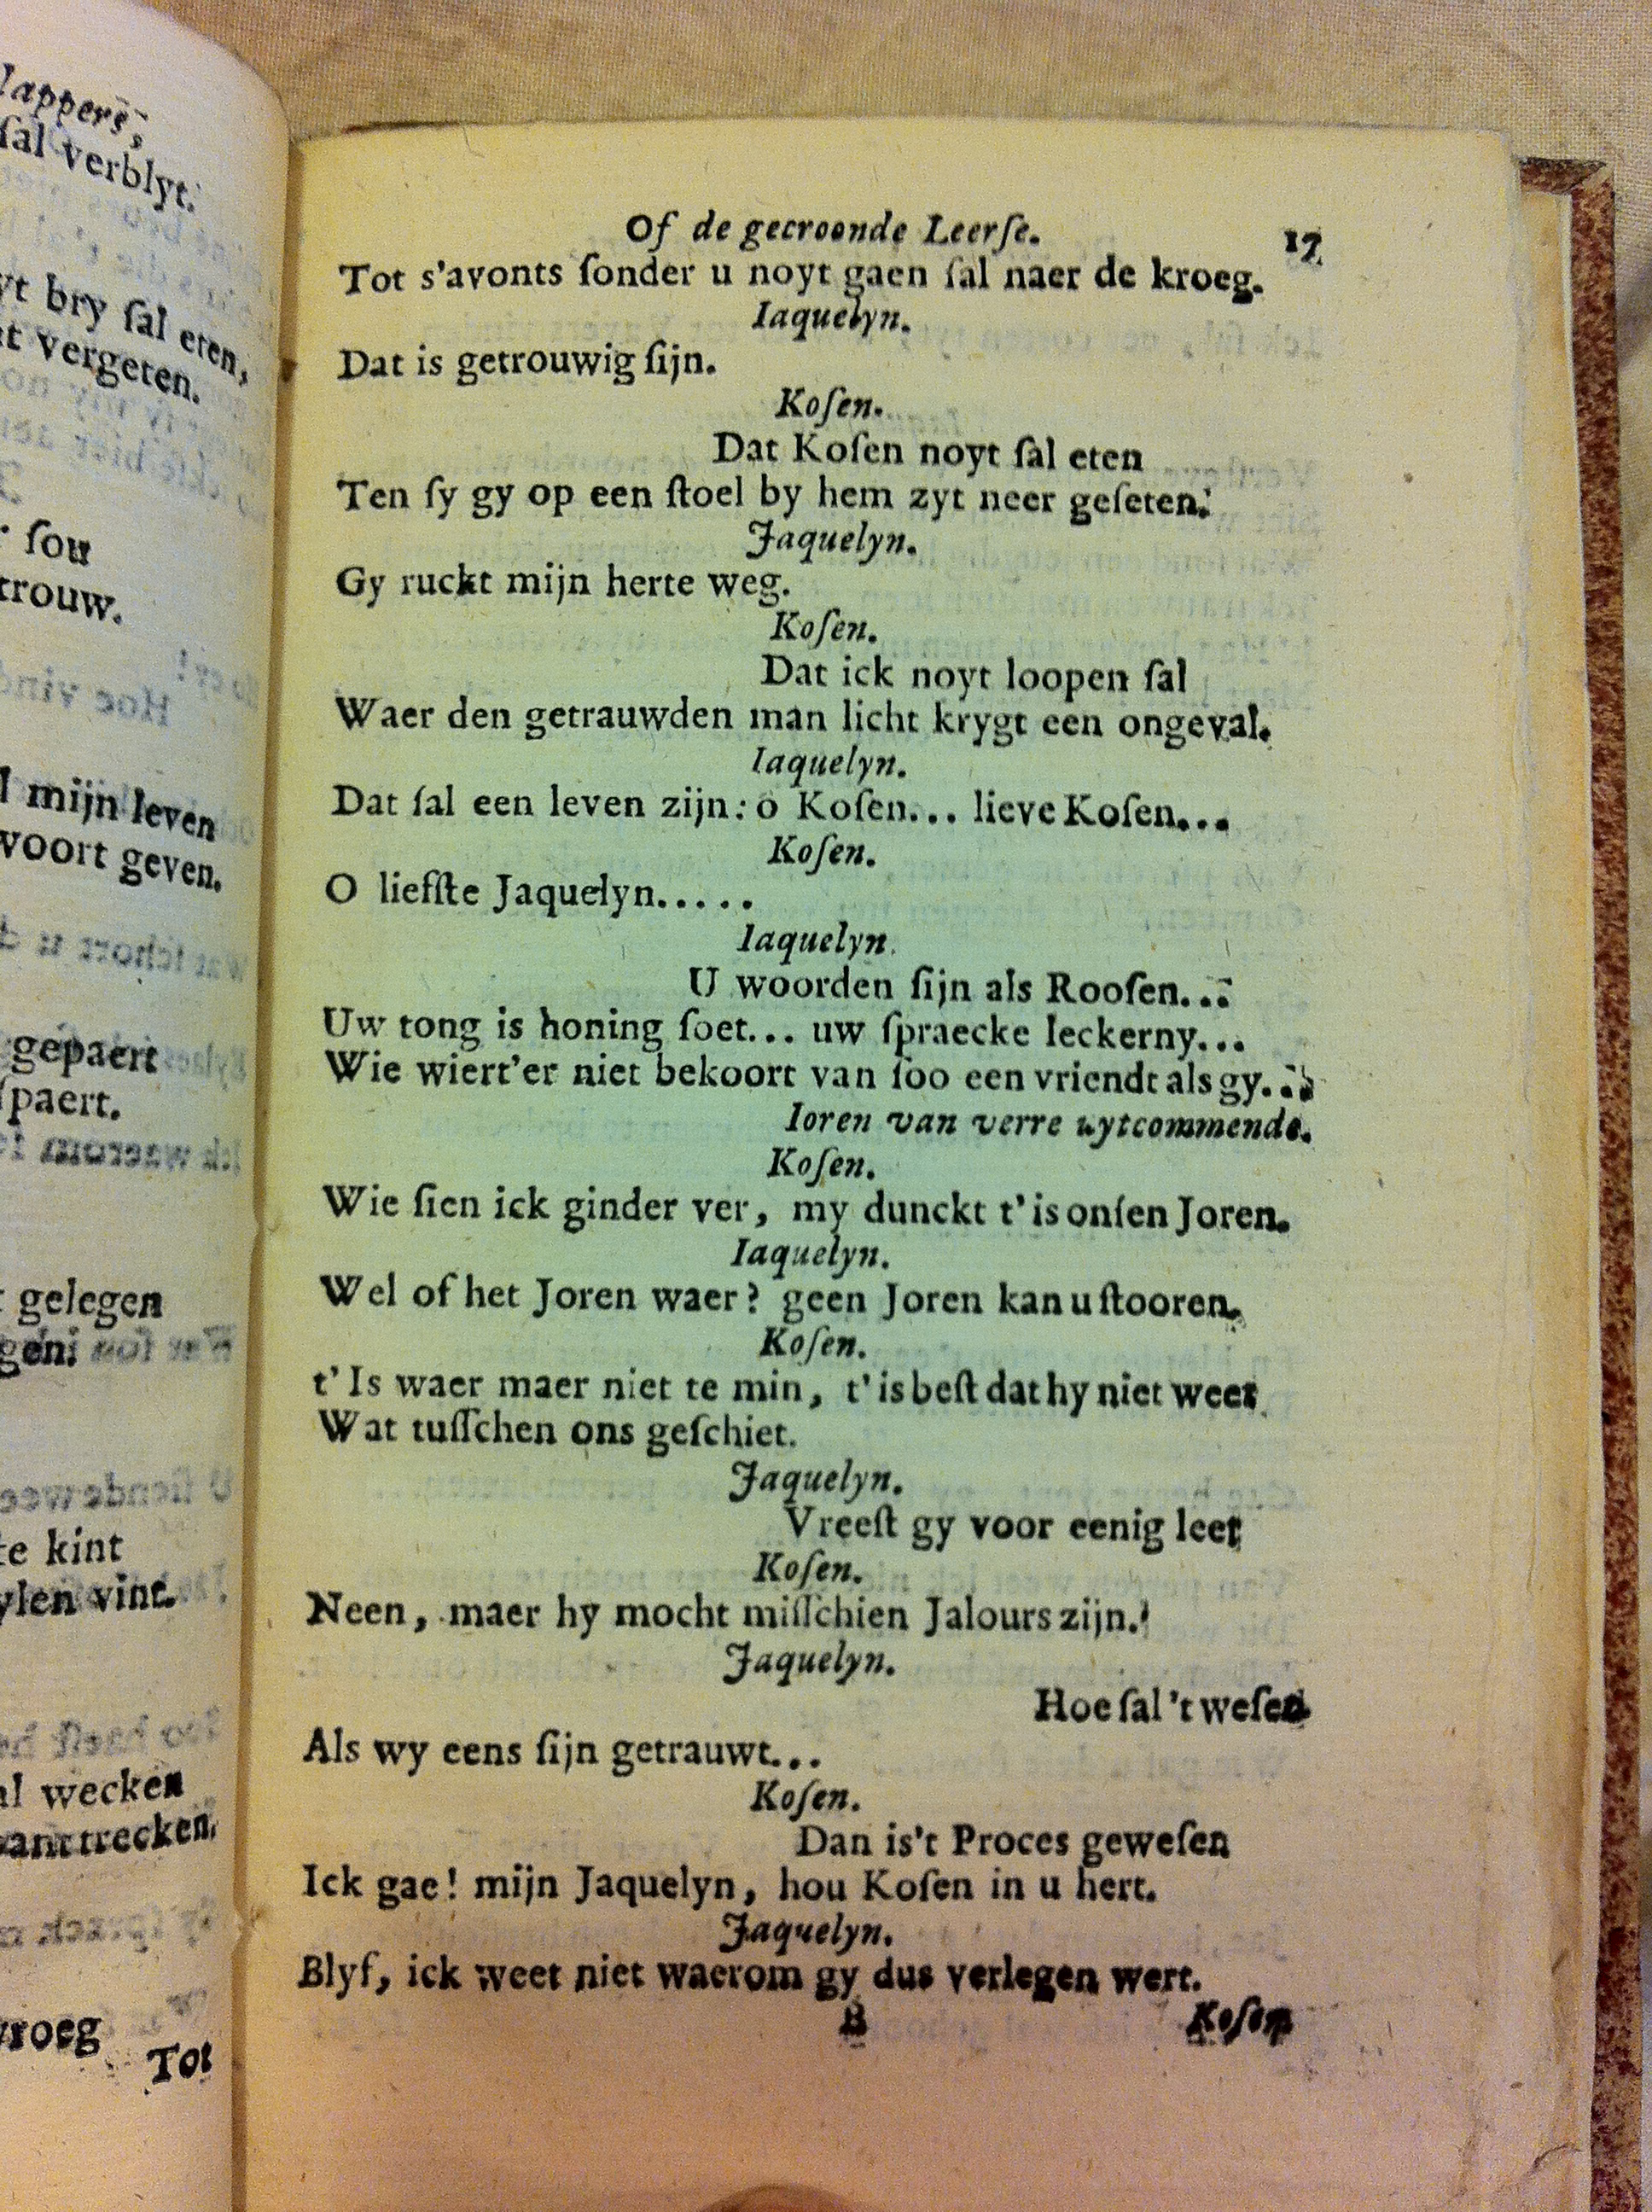 lappers,
ſal verblyt.
yt bry ſal eten,
vergeten.
ſou
trouw.
mijn leven
voort geven.
gepaert
ſpaert.
gelegen
kint
vint.
wecken
trecken.
vroeg
Tot
Of de gecroonde Leerſe. 17
Tot s'avonts ſonder u noyt gaen ſal naer de kroeg.
Iaquelyn.
Dat is getrouwig ſijn.
Koſen.
Dat Koſen noyt ſal eten
Ten ſy gy op een ſtoel by hem zyt neer geſeten.
Jaquelyn.
Gy ruckt mijn herte weg.
Koſen.
Dat ick noyt loopen ſal
Waer den getrauwden man licht krygt een ongeval.
Iaquelyn.
Dat ſal een leven zijn: o Koſen... lieve Koſen...
Koſen.
O liefſte Jaquelyn.....
Iaquelyn.
U woorden ſijn als Rooſen...
Uw tong is honing ſoet... uw ſpraecke leckerny...
Wie wiert'er niet bekoort van ſoo een vriendt als gy...
Ioren van verre uytcommende.
Koſen.
Wie ſien ick ginder ver, my dunckt t'is onſen Joren.
Iaquelyn.
Wel of het Joren waer? geen Joren kan u ſtooren.
Koſen.
t'Is waer maer niet te min, t'is beſt dat hy niet weet
Wat tuſſchen ons geſchiet.
Jaquelyn.
Vreeſt gy voor eenig leet
Koſen.
Neen, maer hy mocht miſſchien Jalours zijn.
Jaquelyn.
Hoe ſal 't weſen
Als wy eens ſijn getrauwt...
Koſen.
Dan is't Proces geweſen
Ick gae! mijn Jaquelyn, hou Koſen in u hert.
Jaquelyn.
Blyf, ick weet niet waerom gy dus verlegen wert.
B Koſen